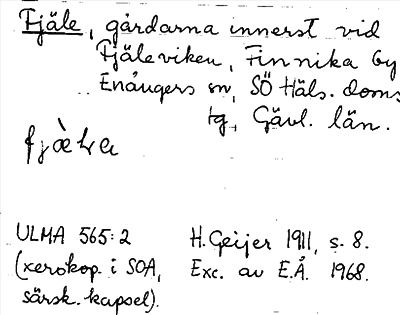 Fjäle, gårdarna innerst vid
Fjäleviken, Finnika by
Enångers sn, SÖ Häls. doms
tg, Gävl. län.
ULMA 565:2 H. Geijer 1911, s. 8.
(xerokop. i SOA, Exc. av E.Å. 1968.
särsk. kapsel).